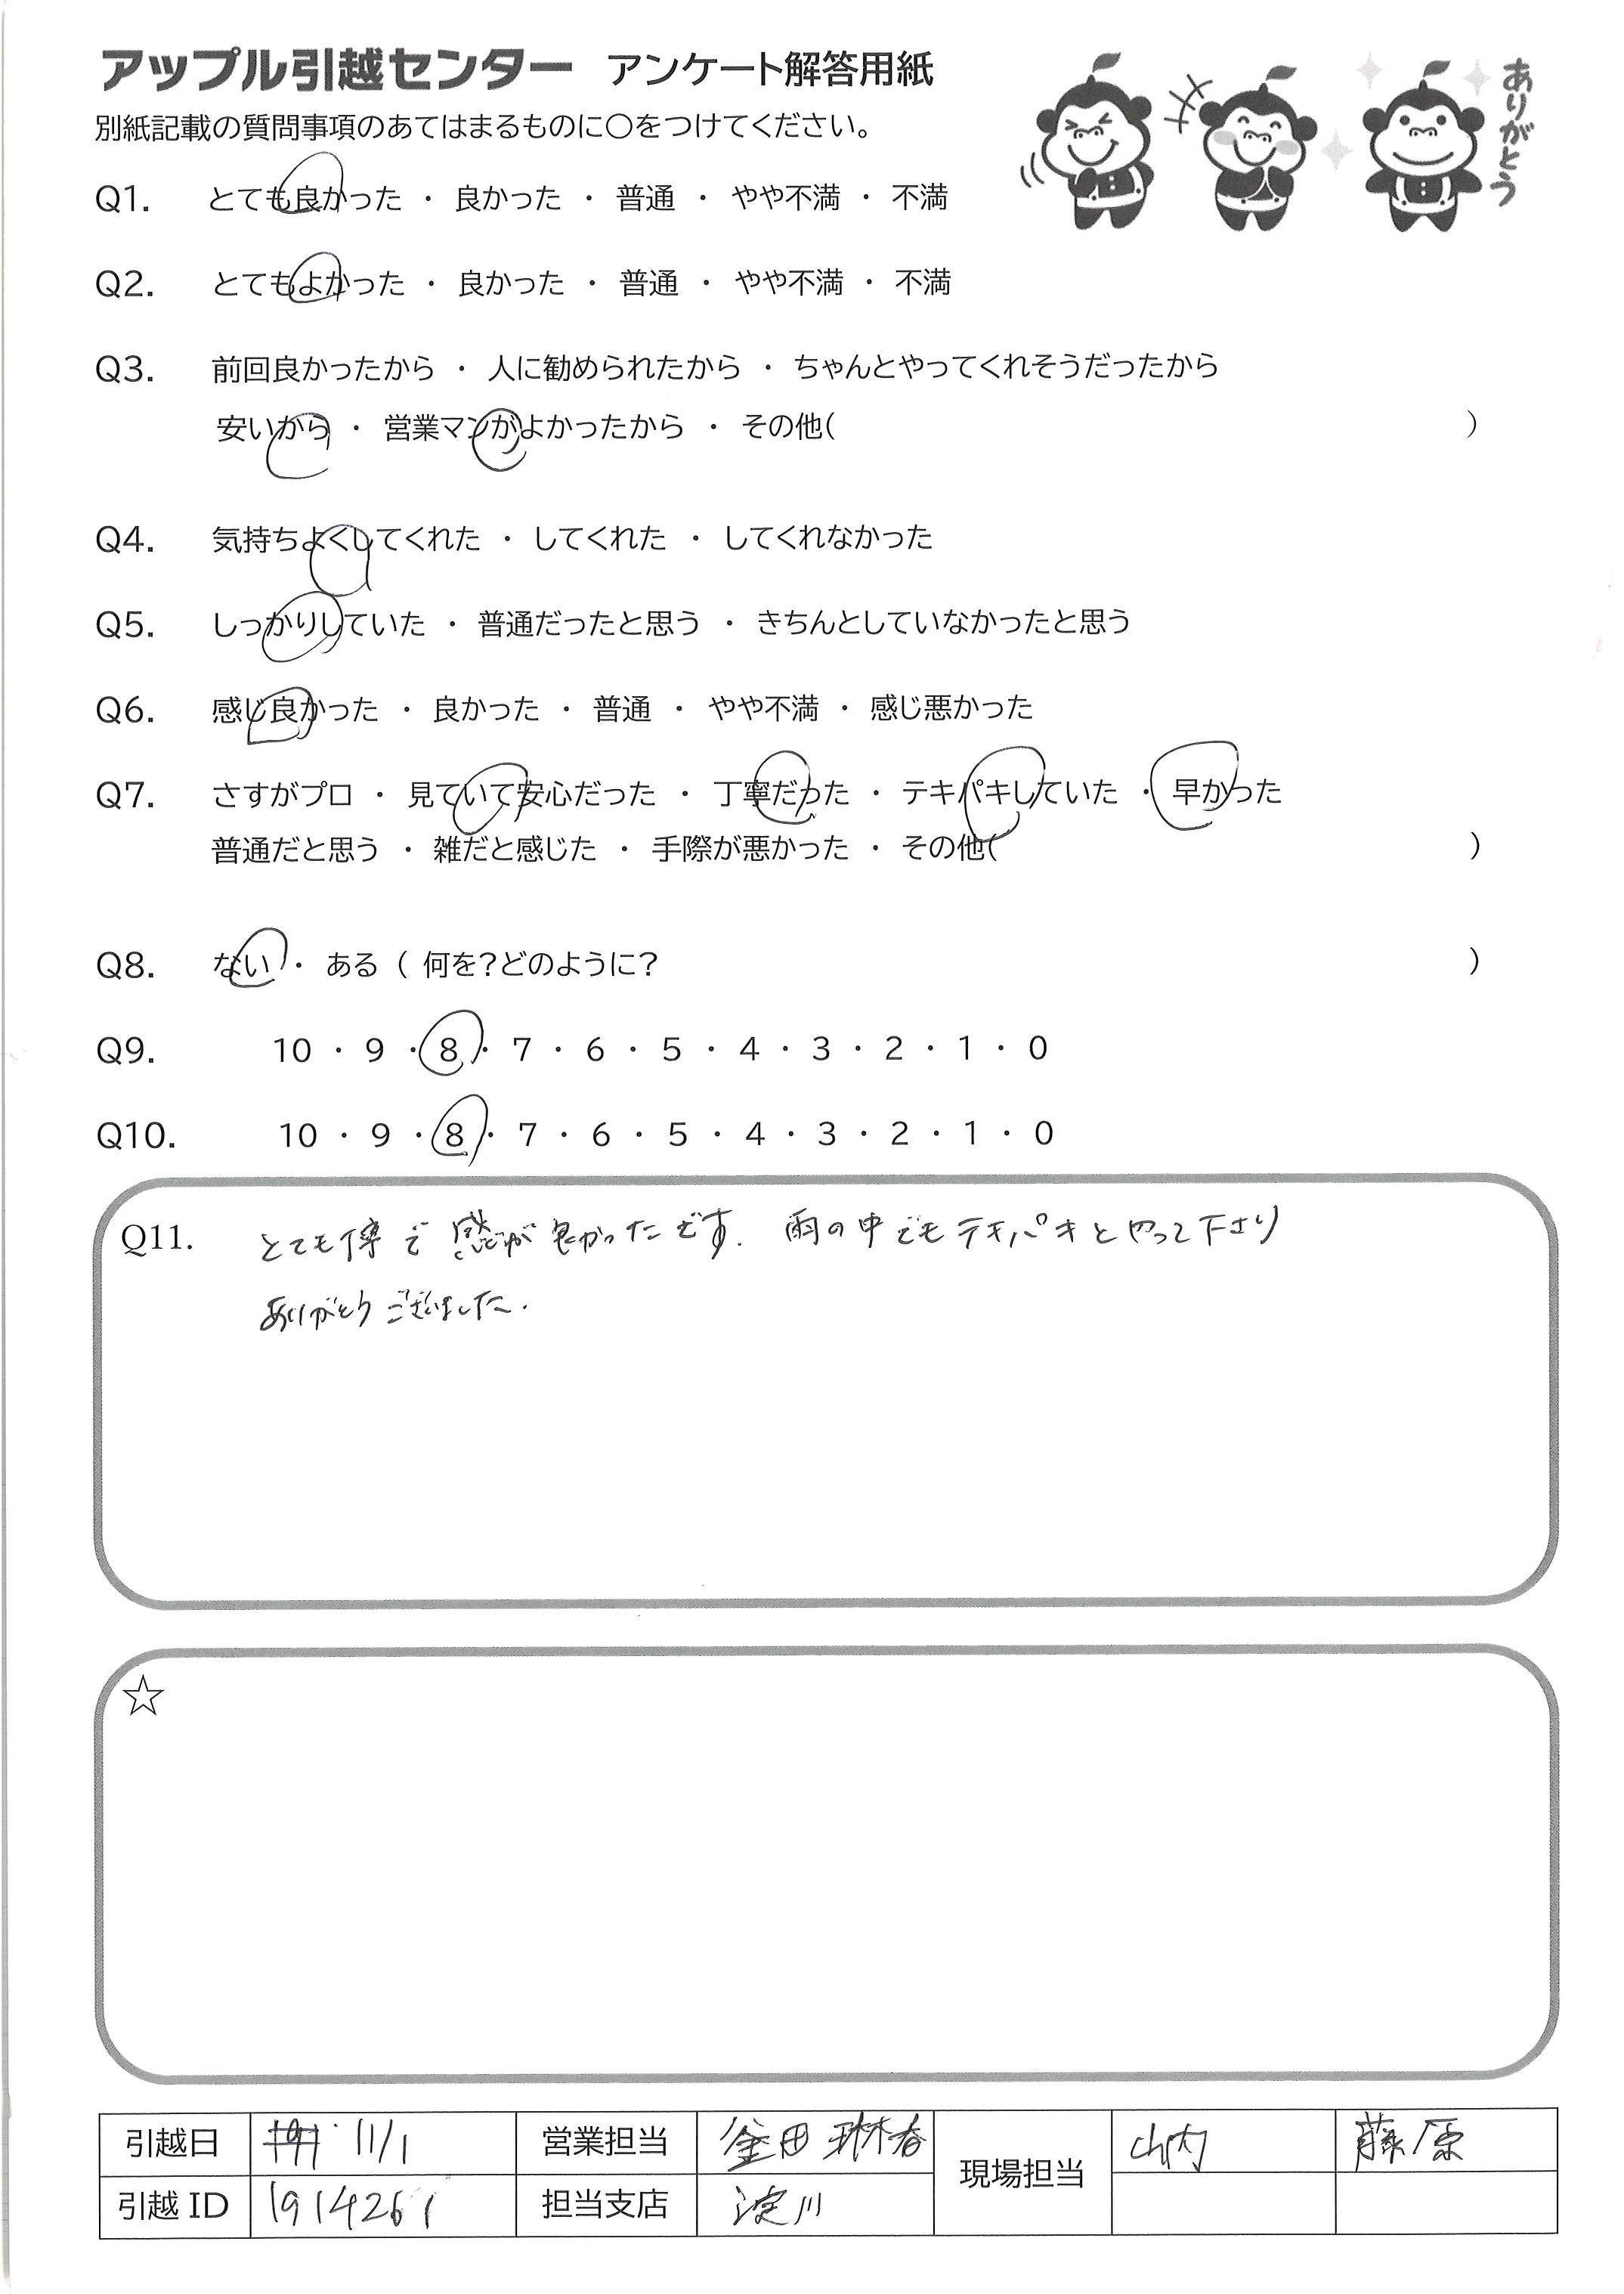 アップル引越センター アンケート解答用紙
ありがとう
別紙記載の質問事項のあてはまるものに○をつけてください。
Q1. とても良かった ・ 良かった ・ 普通 ・ やや不満 ・ 不満
Q2. とてもよかった ・ 良かった ・ 普通 ・ やや不満 ・ 不満
Q3. 前回良かったから ・ 人に勧められたから ・ ちゃんとやってくれそうだったから
安いから ・ 営業マンがよかったから ・ その他( )
Q4. 気持ちよくしてくれた ・ してくれた ・ してくれなかった
Q5. しっかりしていた ・ 普通だったと思う ・ きちんとしていなかったと思う
Q6. 感じ良かった ・ 良かった ・ 普通 ・ やや不満 ・ 感じ悪かった
Q7. さすがプロ ・ 見ていて安心だった ・ 丁寧だった ・ テキパキしていた ・ 早かった
普通だと思う ・ 雑だと感じた ・ 手際が悪かった ・ その他( )
Q8. ない ・ ある ( 何を？どのように？ )
Q9. 10 ・ 9 ・ 8 ・ 7 ・ 6 ・ 5 ・ 4 ・ 3 ・ 2 ・ 1 ・ 0
Q10. 10 ・ 9 ・ 8 ・ 7 ・ 6 ・ 5 ・ 4 ・ 3 ・ 2 ・ 1 ・ 0
Q11. とても で 感じが良かったです. 雨の中でもテキパキとやって下さり
ありがとうございました.
☆
引越日 11/1 営業担当 金田 現場担当 山内 藤原
引越ID 1914261 担当支店 淀川